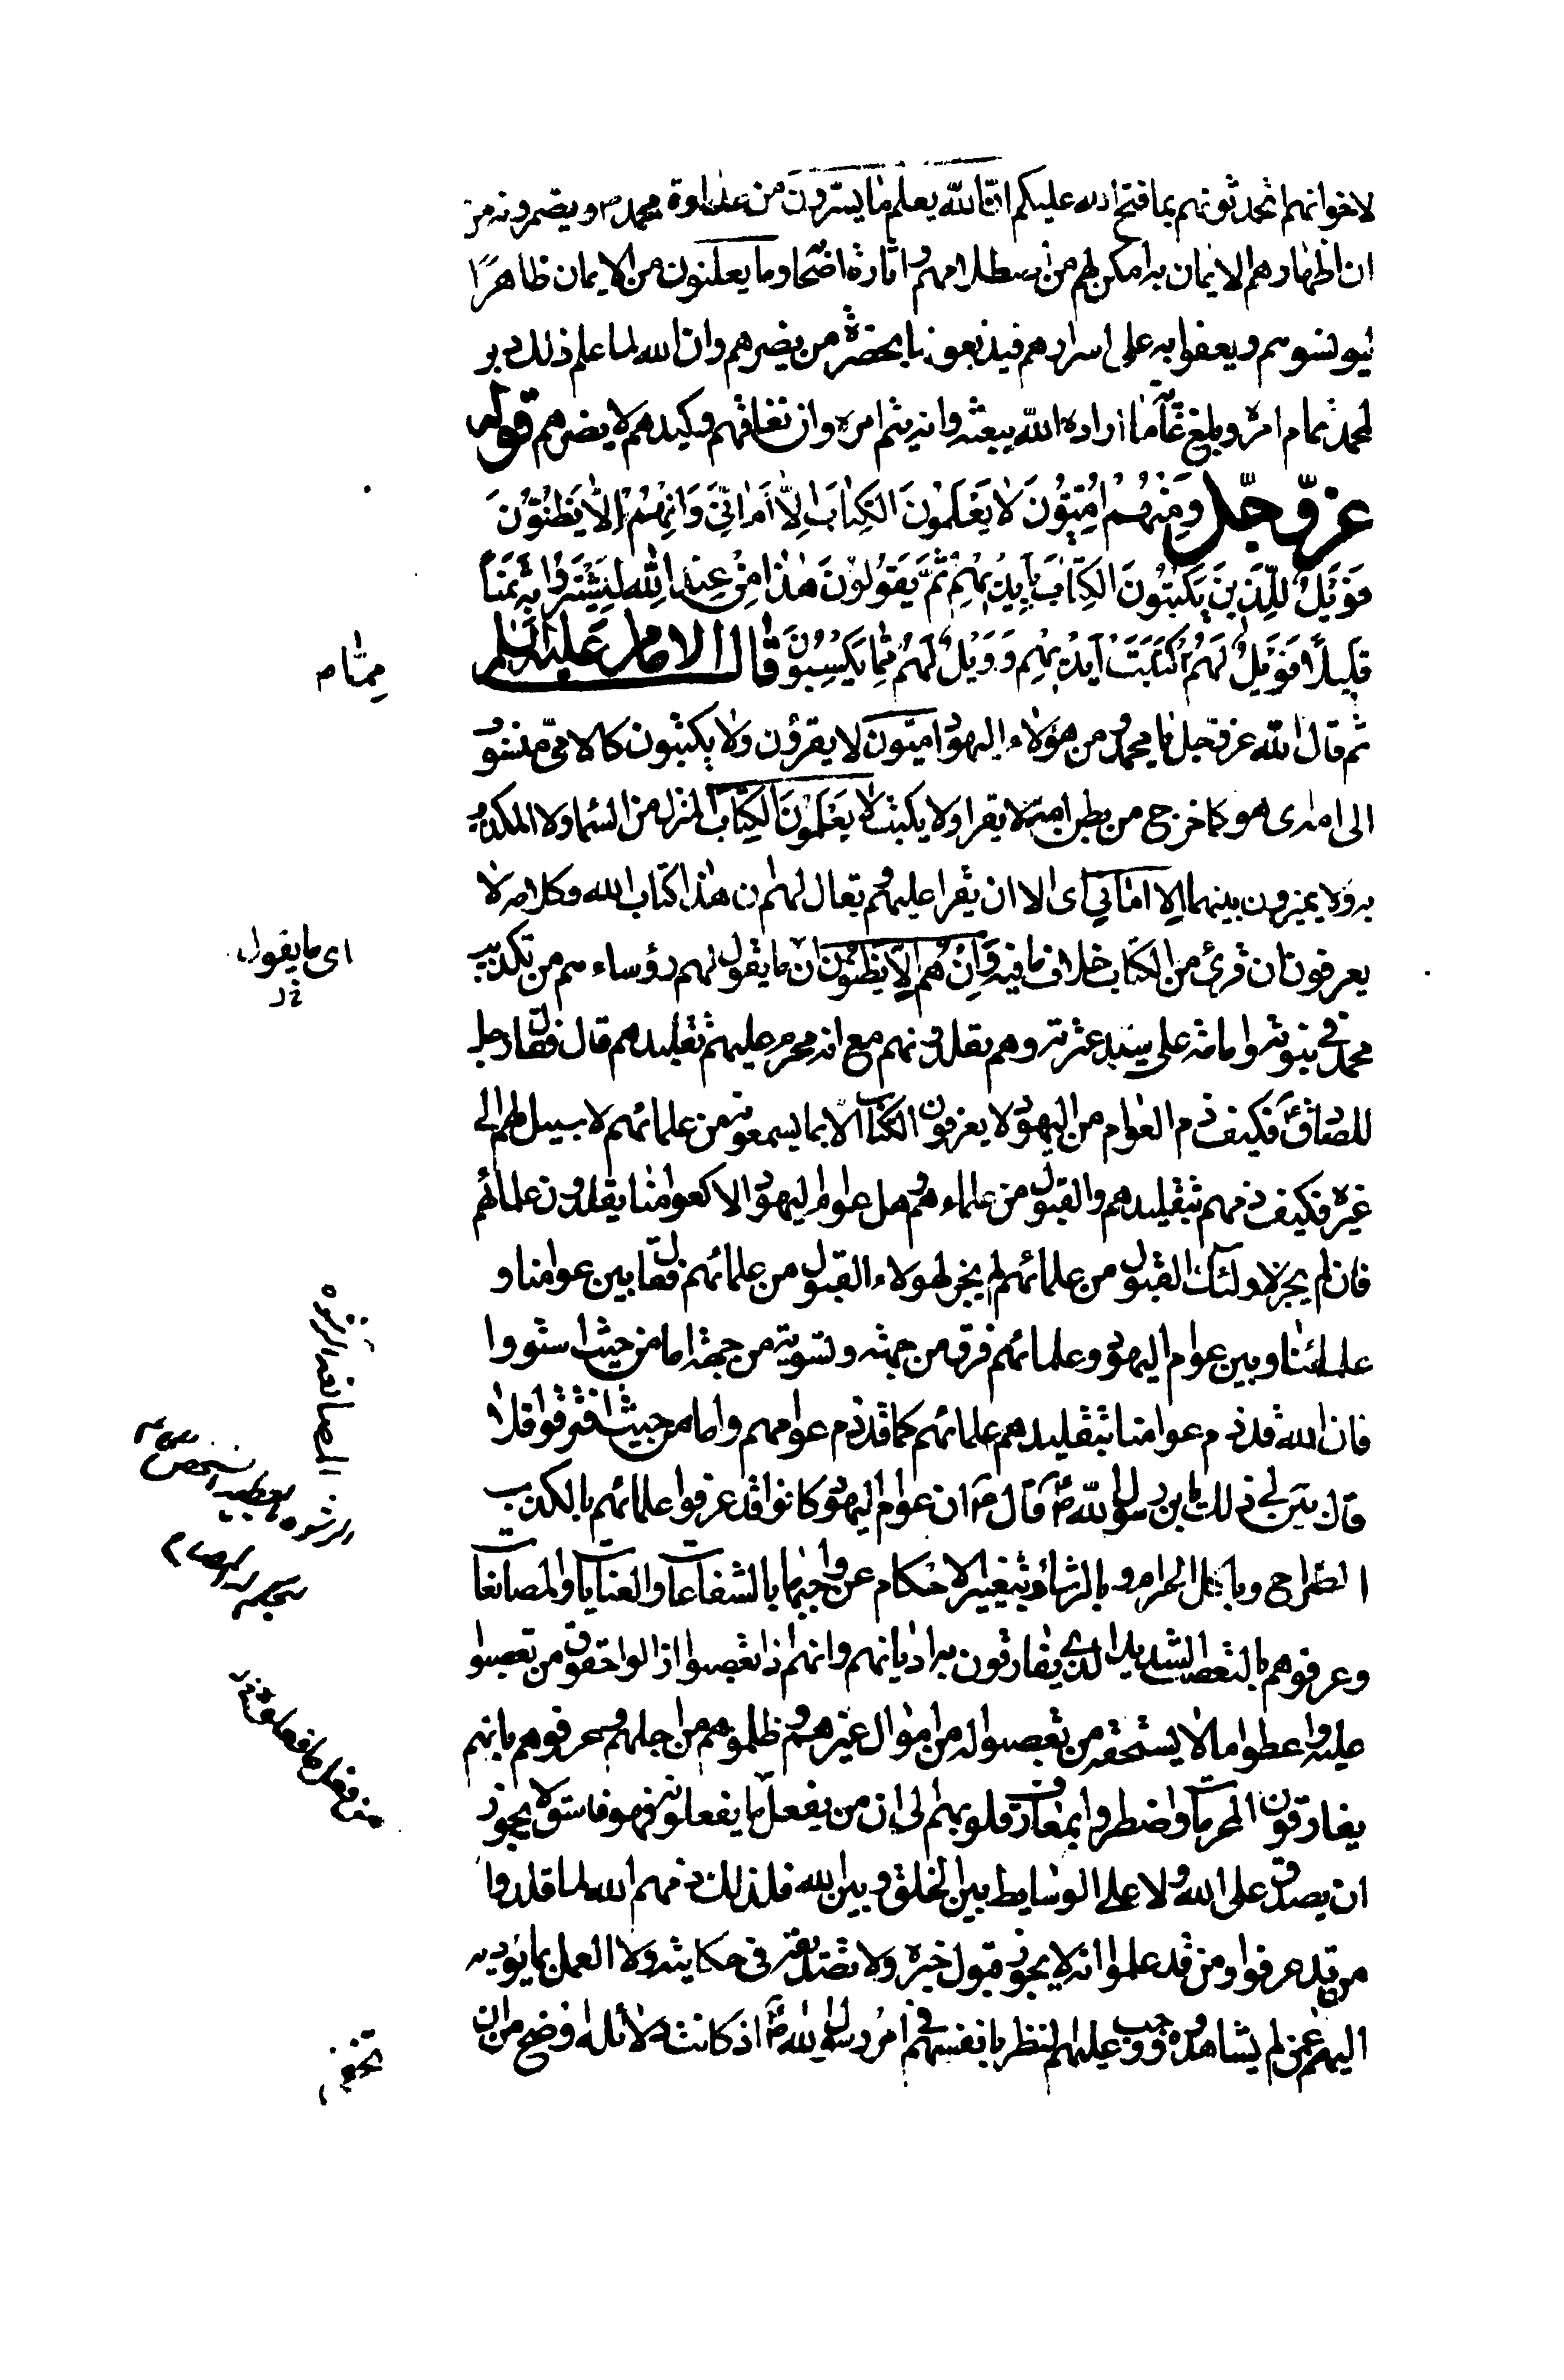 لاخوانهم اتحدثونهم بما فتح الله عليكم انّ الله يعلم ما يسرّون من عداوة محمد ص و يضمرونه من
ان اظهارهم الايمان به امكن لهم من اصطلامهم و ابادة اصحابه و ما يعلنون من الايمان ظاهرًا
ليونسوهم و يقفوا به على اسرارهم فيذيعونها بحضرة من يضرهم و ان الله لما علم ذلك دبر
لمحمد تمام امره و بلوغ غاية ما اراده الله ببعثه و انه يتم امره و ان نفاقهم و كيدهم لا يضرهم قوله
عزّ و جلّ وَمِنْهُمْ اُمِّيُّونَ لَا يَعْلَمُونَ الْكِتَابَ اِلَّا أَمَانِيَّ وَاِنْ هُمْ اِلَّا يَظُنُّونَ
فَوَيْلٌ لِلَّذِينَ يَكْتُبُونَ الْكِتَابَ بِاَيْدِيهِمْ ثُمَّ يَقُولُونَ هٰذَا مِنْ عِنْدِ اللّٰهِ لِيَشْتَرُوا بِهِ ثَمَنًا
قَلِيلًا فَوَيْلٌ لَهُمْ كَتَبَتْ اَيْدِيهِمْ وَ وَيْلٌ لَهُمْ مِمَّا يَكْسِبُونَ قال الامام عليه السلم
مِمّا م
ثم قال الله عز و جل يا محمد و من هؤلاء اليهود اميّون لا يقرؤن ولا يكتبون كالامّى منسوب
الى امه اى هو كما خرج من بطن امه لا يقرا ولا يكتب لا يَعْلَمُونَ الْكِتَابَ المنزل من السماء ولا المكذب
به ولا يميزون بينهما اِلا امَانِيّ اى الا ان يقرا عليهم و يقال لهم ان هذا كتاب الله و كلامه لا
يعرفون ان قرئ من الكتاب خلاف ما فيه وَاِنْ هُمْ اِلّا يَظُنُّونَ ان ما يقول لهم رؤساءهم من تكذيب
اى ما يقول
محمد فى نبوته و امامة على سيد عترته و هم يقلدونهم مع انه محرم عليهم تقليدهم قال فقال رجل
للصادق ع فكيف ذم العوام من اليهود لا يعرفون الكتاب الا بما يسمعونه من علمائهم لا سبيل لهم الى
غيره فكيف ذمهم بتقليدهم و القبول من علماءهم و هل عوام اليهود الا كعوامنا يقلدون علمائهم
فان لم يجز لاولئك القبول من علمائهم لم يجز لهولاء القبول من علمائهم فقال بين عوامنا و
علمائنا و بين عوام اليهود و علمائهم فرق من جهة و تسوية من جهة اما من حيث استووا
فان الله قد ذم عوامنا بتقليدهم علمائهم كما قد ذم عوامهم و اما من حيث افترقوا فلا
قال بيّن لى ذلك يابن رسول الله ص قال ع ان عوام اليهود كانوا قد عرفوا علمائهم بالكذب
الصراح و باكل الحرام و بالرشاء و بتغيير الاحكام عن واجبها بالشفاعات و العنايات و المصانعات
المصانعة الرشوه
و عرفوهم بالتعصب الشديد الذى يفارقون به اديانهم و انهم اذا تعصبوا ازالوا حقوق من تعصبوا
عليه و اعطوا ما لا يستحقه من تعصبوا له من اموال غيرهم و ظلموهم من اجلهم و عرفوهم بانهم
يقارقون المحرمات و اضطروا بمعارف قلوبهم الى ان من يفعل ما يفعلونه فهو فاسق لا يجوز
ان يصدق على الله و لا على الوسايط بين الخلق و بين الله فلذلك ذمهم الله لما قلدوا
من قد عرفوا و من قد علموا انه لا يجوز قبول خبره ولا تصديقه فى حكايته ولا العمل بما يؤديه
اليهم عمن لم يشاهدوه و وجب عليهم النظر بانفسهم فى امر رسول الله ص اذ كانت دلائله اوضح من ان
تخفى